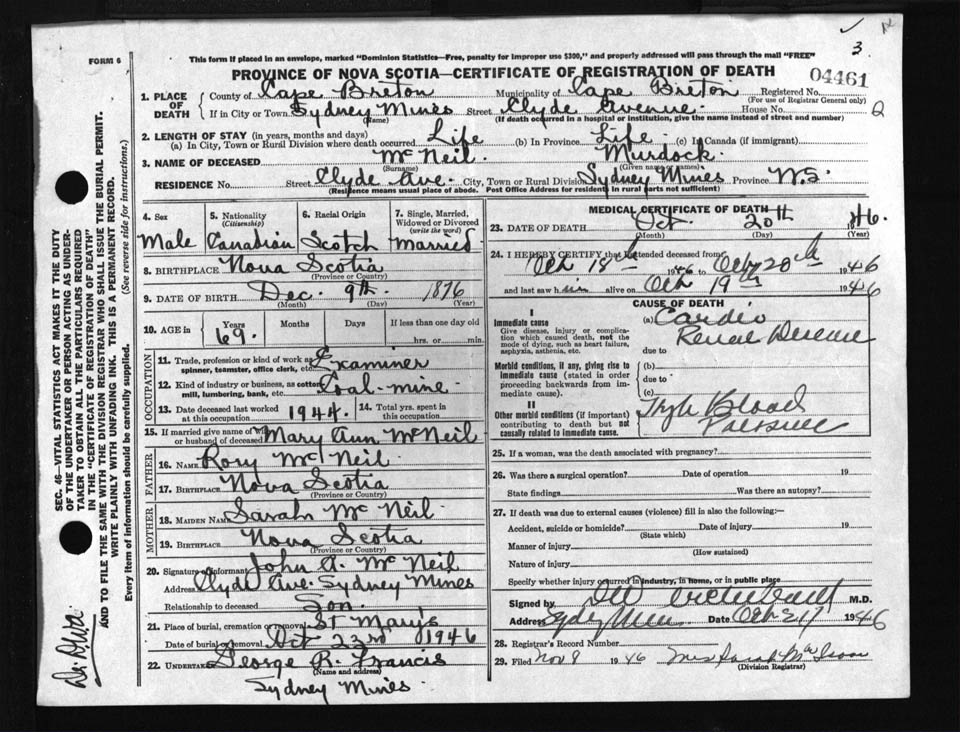 FORM 6
This form if placed in an envelope, marked "Dominion Statistics—Free, penalty for improper use $300," and properly addressed will pass through the mail "FREE"
3
PROVINCE OF NOVA SCOTIA—CERTIFICATE OF REGISTRATION OF DEATH
04461
1. PLACE OF DEATH
County of Cape Breton Municipality of Cape Breton Registered No.
(For use of Registrar General only)
If in City or Town Sydney Mines Street Clyde Avenue House No. 2
(Name) (If death occurred in a hospital or institution, give the name instead of street and number)
2. LENGTH OF STAY (in years, months and days)
(a) In City, Town or Rural Division where death occurred Life (b) In Province Life (c) In Canada (if immigrant)
3. NAME OF DECEASED McNeil Murdock
(Surname) (Given name or names)
RESIDENCE No. Street Clyde Ave. City, Town or Rural Division Sydney Mines Province N.S.
(Residence means usual place of abode. Post Office Address for residents in rural parts not sufficient)
4. Sex Male
5. Nationality (Citizenship) Canadian
6. Racial Origin Scotch
7. Single, Married, Widowed or Divorced (write the word) Married
8. BIRTHPLACE Nova Scotia
(Province or Country)
9. DATE OF BIRTH Dec. 9th. 1876
(Month) (Day) (Year)
10. AGE in Years 69. Months Days If less than one day old hrs. or min.
OCCUPATION
11. Trade, profession or kind of work as spinner, teamster, office clerk, etc. Examiner
12. Kind of industry or business, as cotton mill, lumbering, bank, etc. Coal-mine
13. Date deceased last worked at this occupation 1944. 14. Total yrs. spent in this occupation
15. If married give name of wife or husband of deceased Mary Ann McNeil
FATHER
16. NAME Rory McNeil
17. BIRTHPLACE Nova Scotia
(Province or Country)
MOTHER
18. MAIDEN NAME Sarah McNeil
19. BIRTHPLACE Nova Scotia
(Province or Country)
20. Signature of informant John A. McNeil
Address Clyde Ave. Sydney Mines
Relationship to deceased Son
21. Place of burial, cremation or removal St Mary's
Date of burial or removal Oct 23rd 1946
22. UNDERTAKER George R. Francis
(Name and address)
Sydney Mines.
MEDICAL CERTIFICATE OF DEATH
23. DATE OF DEATH Oct 20th 46.
(Month) (Day) (Year)
24. I HEREBY CERTIFY that I attended deceased from
Oct 18 1946 to Oct 20th 1946
and last saw h im alive on Oct 19th 1946
CAUSE OF DEATH
I
Immediate cause
Give disease, injury or complication which caused death, not the mode of dying, such as heart failure, asphyxia, asthenia, etc.
(a) Cardio
Renal Disease
due to
Morbid conditions, if any, giving rise to immediate cause (stated in order proceeding backwards from immediate cause).
(b)
due to
(c)
II
Other morbid conditions (if important) contributing to death but not causally related to immediate cause.
High Blood
Pressure
25. If a woman, was the death associated with pregnancy?
26. Was there a surgical operation? Date of operation 19
State findings Was there an autopsy?
27. If death was due to external causes (violence) fill in also the following:—
Accident, suicide or homicide? Date of injury 19
(State which)
Manner of injury
(How sustained)
Nature of injury
Specify whether injury occurred in industry, in home, or in public place
Signed by M.D.
Address Sydney Mines Date Oct 21 1946
28. Registrar's Record Number
29. Filed Nov 8 1946 Mrs Sarah
(Division Registrar)
SEC. 46—VITAL STATISTICS ACT MAKES IT THE DUTY
OF THE UNDERTAKER OR PERSON ACTING AS UNDERTAKER
TO OBTAIN ALL THE PARTICULARS REQUIRED
IN THE "CERTIFICATE OF REGISTRATION OF DEATH"
AND TO FILE THE SAME WITH THE DIVISION REGISTRAR WHO SHALL ISSUE THE BURIAL PERMIT.
WRITE PLAINLY WITH UNFADING INK. THIS IS A PERMANENT RECORD.
Every item of information should be carefully supplied. (See reverse side for instructions.)